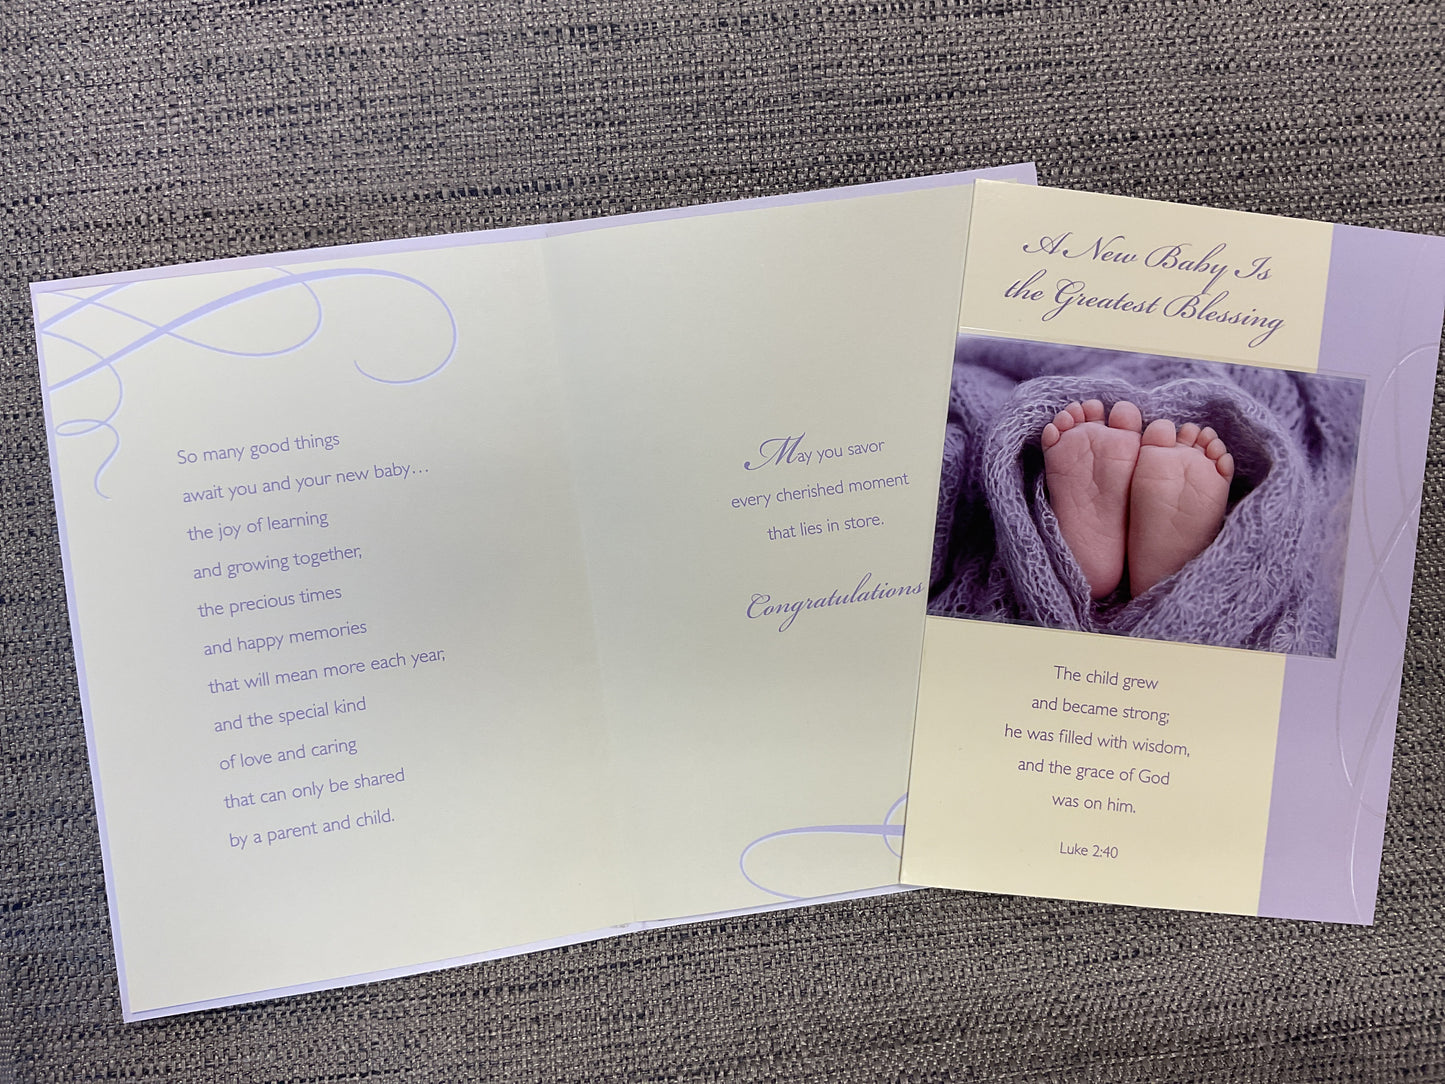 So many good things
await you and your new baby…
the joy of learning
and growing together,
the precious times
and happy memories
that will mean more each year,
and the special kind
of love and caring
that can only be shared
by a parent and child.
May you savor
every cherished moment
that lies in store.
Congratulations
A New Baby Is
the Greatest Blessing
The child grew
and became strong;
he was filled with wisdom,
and the grace of God
was on him.
Luke 2:40